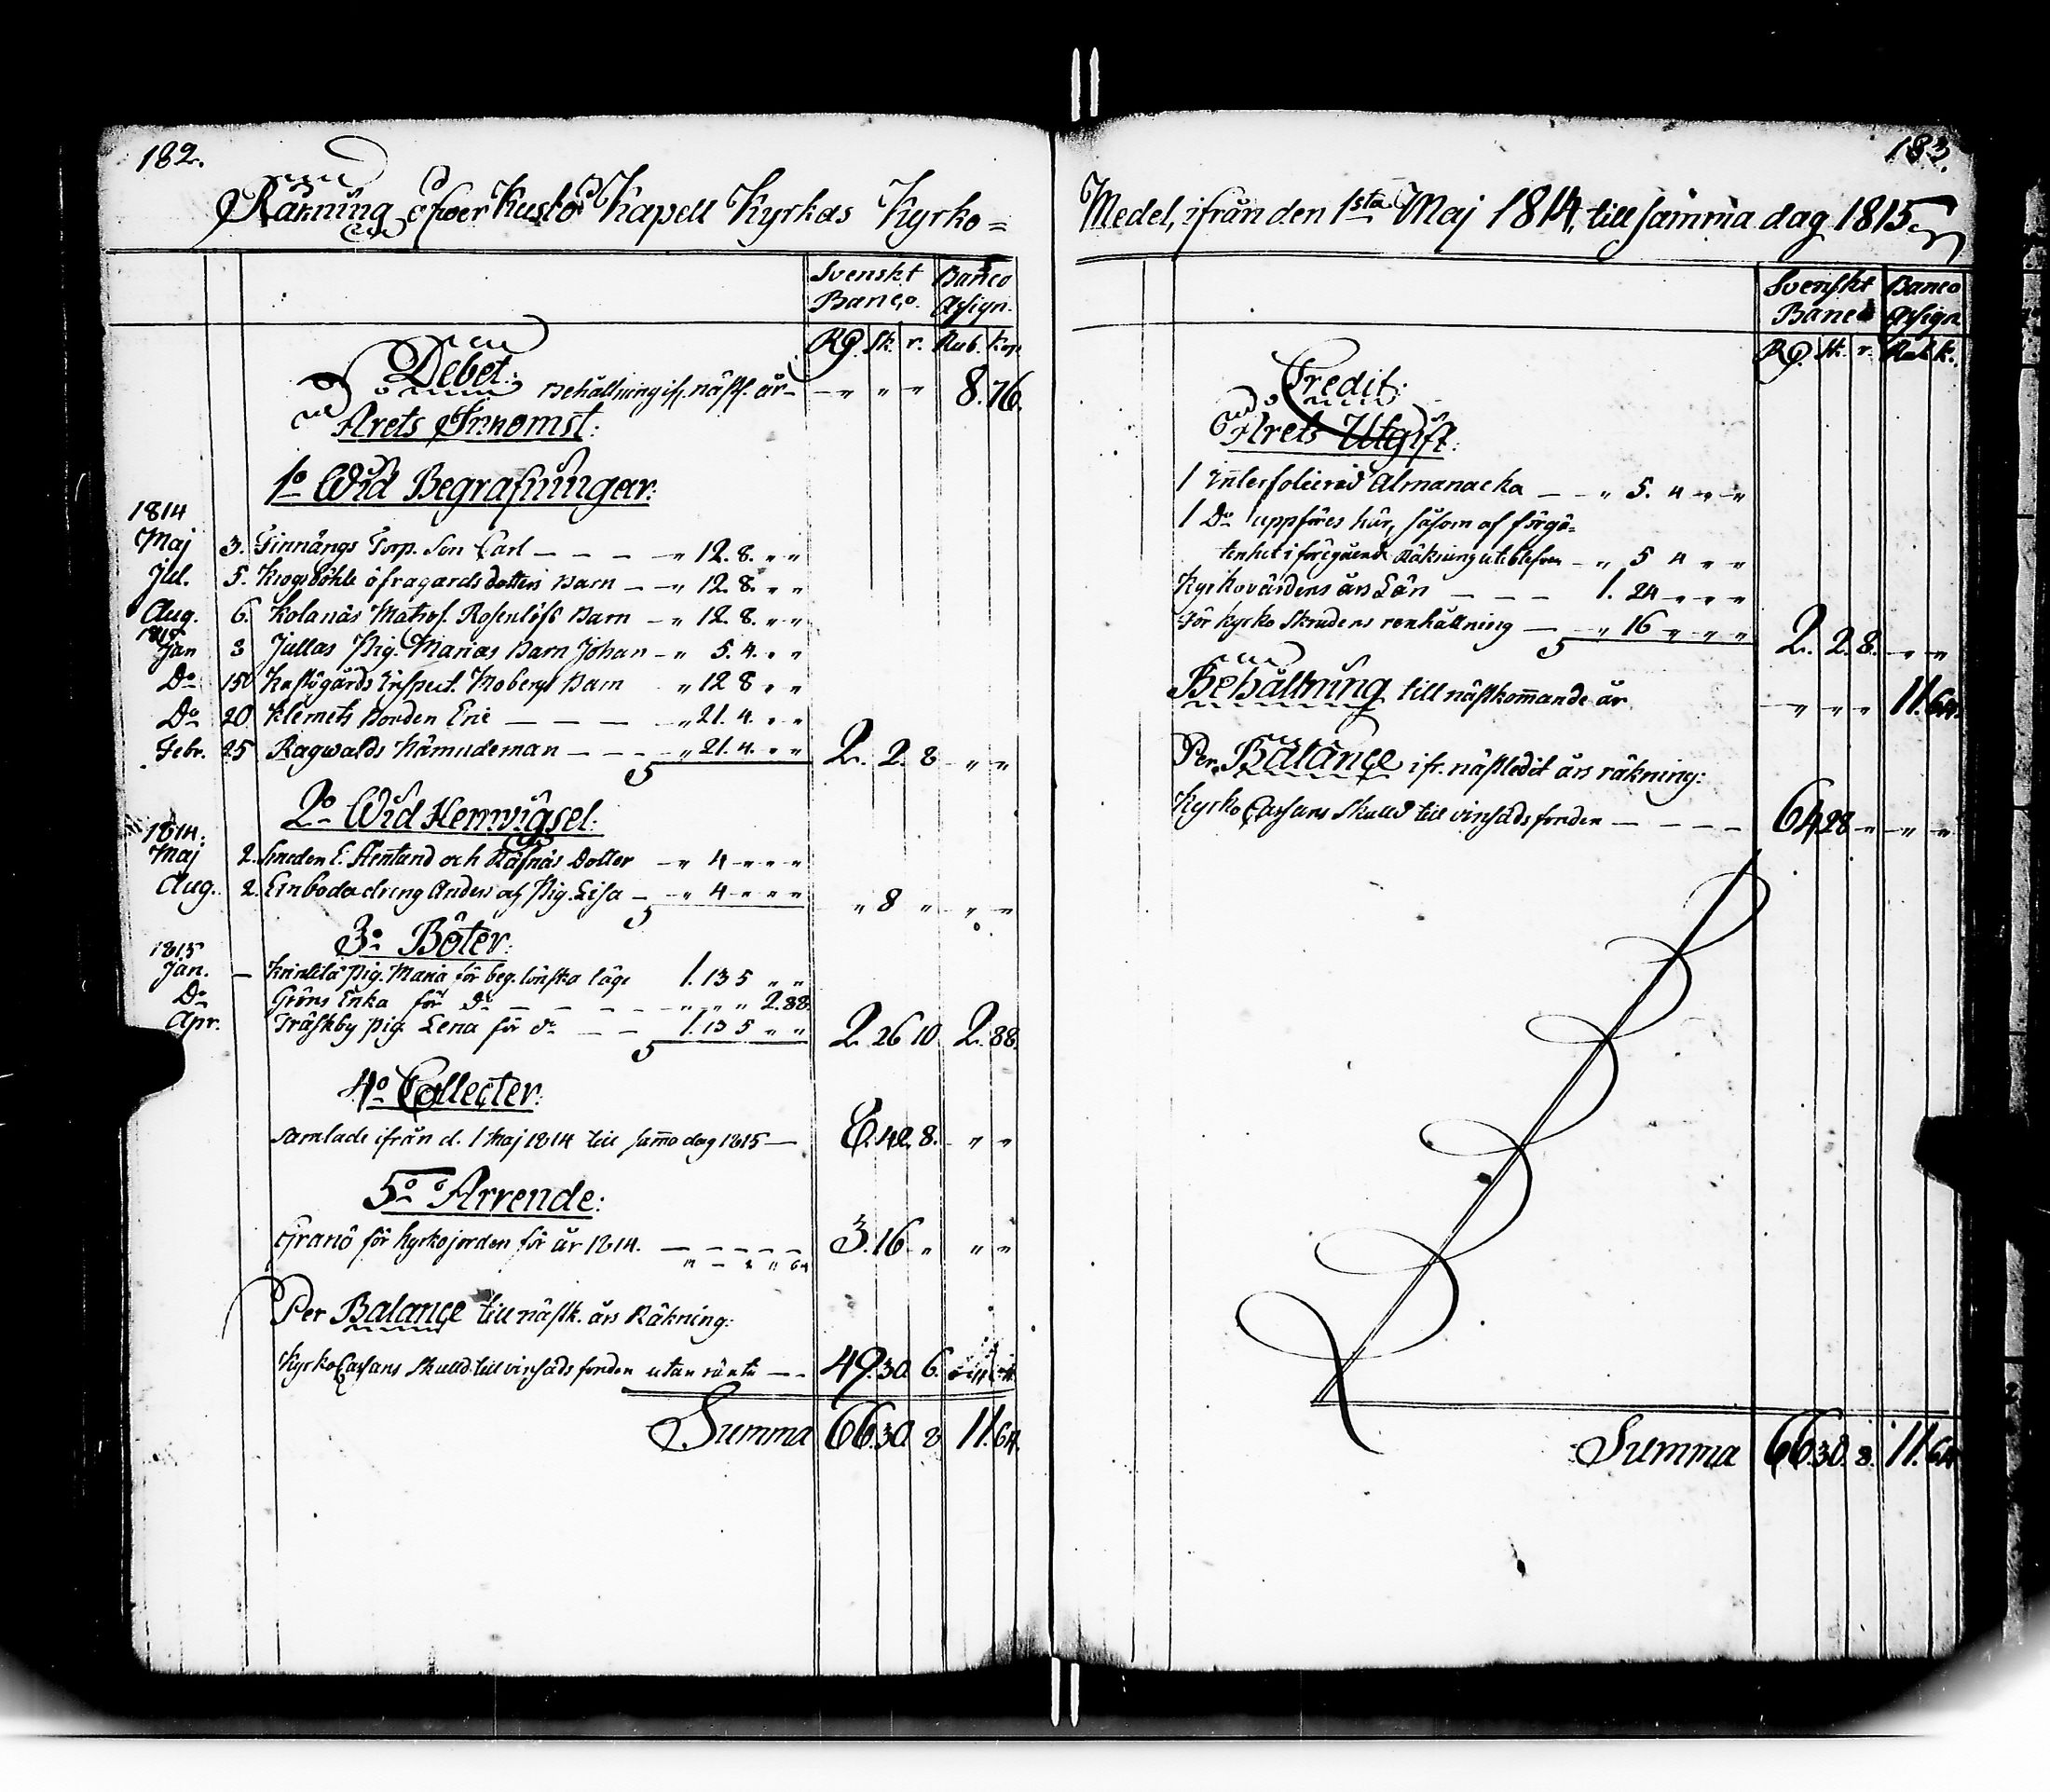 182.
Räkning öfwer Kustö Kapell Kyrkas Kyrko=
Svenskt Banco
Banco. Assign.
Rd. sk. r. Rub. Kop.
Debet: Behållning ifr. näst. år — " " " 8. 76.
Årets Inkomst:
1o Wid Begrafningar:
1814
Maj 3. Finnängs Torp. Son Carl — — — " 12. 8. " "
Jul. 5. Krogsböhle öfragards dotters Barn — " 12. 8. " "
Aug. 6. Kolanäs Matros. Rosenlöfs Barn — " 12. 8. " "
1815
Jan 3 Jullas Pig. Marias Barn Johan — " 5. 4. " "
Do 15 Inspect. Mobergs Barn " 12 8 " "
Do 20 Klemets Bonden Eric — — — " 21. 4. " "
Febr. 25 Ragwalds Nämndeman — — — " 21. 4. " " 2. 2. 8 " "
2o Wid Hemwigsel:
1814.
Maj 2. Smeden E. Stenstand och Dotter — " 4 " " "
Aug. 2. dreng Anders och Pig. Lisa — " 4 " " " " 8 " " "
3o Böter:
1815
Jan. — Pig. Maria för beg. lönska läge 1. 13 5 " "
Do Gröns Enka för Do — — — " " " 2. 88.
Apr. Träskby pig. Lena för do — — 1. 13 5 " " 2. 26 10 2. 88.
4o Collecter:
Samlade ifrån d. 1 Maj 1814 till samma dag 1815 — 8. 42. 8. " "
5o Arrende:
Granö för kyrkojorden för år 1814. — — — — — 3. 16 " " "
Per Balance till nästk. års Räkning:
Kyrko Cassans Skuld till vinsäds fonden utan ränta — — 49. 30. 6.
Summa 66. 30. 8 11. 64.
183.
Medel, ifrån den 1sta Maj 1814, till samma dag 1815.
Svenskt Banco
Banco Assign
Rd. sk. r. Rub. k.
Credit:
Årets Utgift:
1 Interfolierad Almanacka — — " 5. 4 " "
1 Do uppföres här, såsom af förgä=
tenhet i föregående Räkning utblefven — " 5 4 " "
Kyrkovärdens års Lön — — — 1. 24 " " "
För kyrko skrudens renhållning — " 16 " " " 2. 2. 8. " "
Behållning till nästkommande år " " " 11. 64.
Per Balance ifr. nästledit års räkning:
Kyrko Cassans Skuld till vinsäds fonden — — — — 64 28 " " "
Summa 66. 30. 8. 11. 64